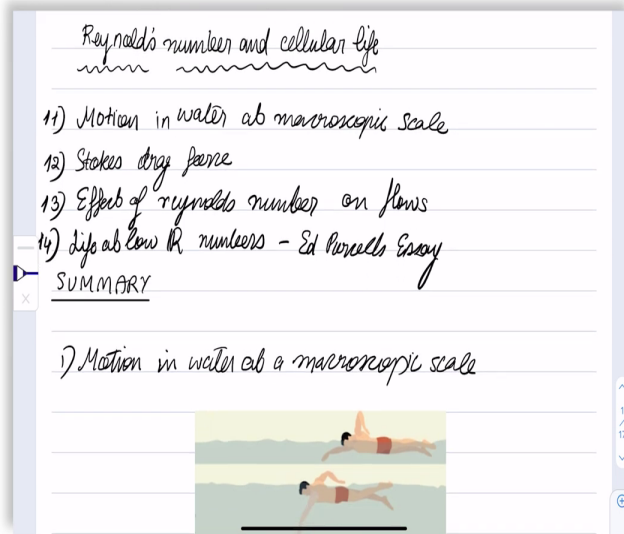 Reynold's number and cellular life
11) Motion in water at macroscopic scale
12) Stokes drag force
13) Effect of reynolds number on flows
14) Life at low R numbers - Ed Purcells Essay
SUMMARY
1) Motion in water at a macroscopic scale